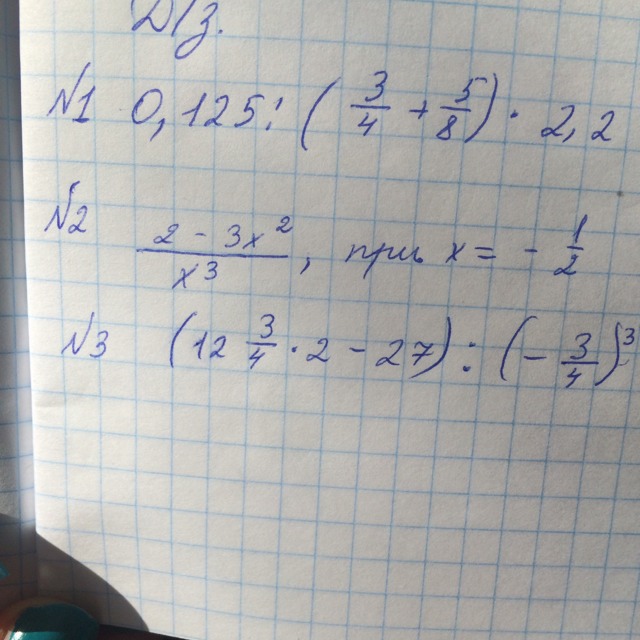 Д/з.
№1 0,125 : (3/4 + 5/8) · 2,2
№2 (2 - 3x²)/x³, при x = - 1/2
№3 (12 3/4 · 2 - 27) : (- 3/4)³